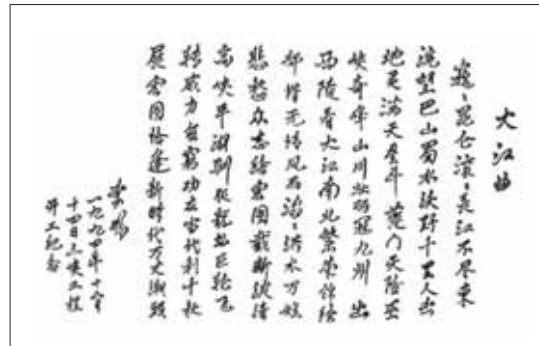 大江曲
巍巍昆仑滚滚长江不尽东
流望巴山蜀水沃野千里人杰
地灵满天星斗夔门天险巫
峡奇峰山川壮丽冠九州 出
西陵看大江南北繁荣锦绣
那堪无情风雨滔滔洪水万姓
悲愁众志绘宏图截断波涛
高峡平湖驯服龙巨轮飞
转威力无穷功在当代利千秋
展宏图恰逢新时代潮头
李鹏
一九九四年十二月
十四日三峡工程
开工纪念